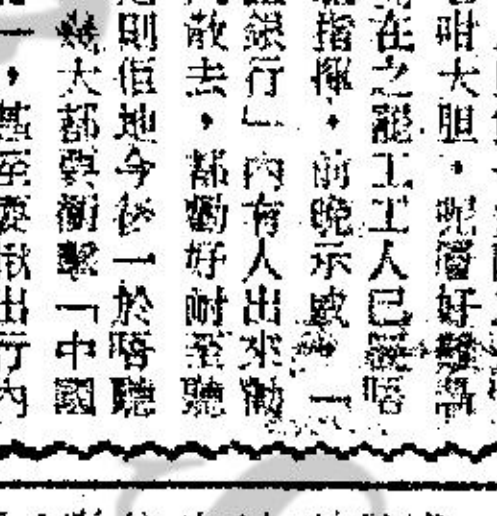 咁大胆，呢層好難講
在之罷工工人已經唔
指揮，前晚示威一
銀行」內有人出來勸
散去，都勸好耐至聽
則佢地今後一於唔聽
幾大都要衝擊「中國
一，甚至要出行內